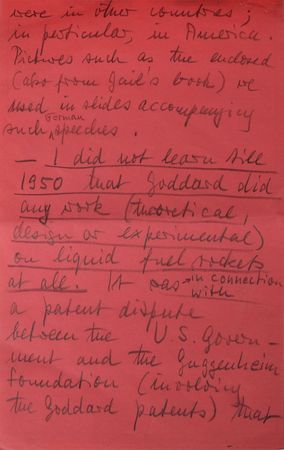 were in other countries;
in particular, in America.
Pictures such as the enclosed
(also from Gail's book) we
used in slides accompanying
such German speeches.
— I did not learn till
1950 that Goddard did
any work (theoretical,
design or experimental)
on liquid fuel rockets
at all. It was in connection
with
a patent dispute
between the U.S. Govern-
ment and the Guggenheim
Foundation (involving
the Goddard patents) that